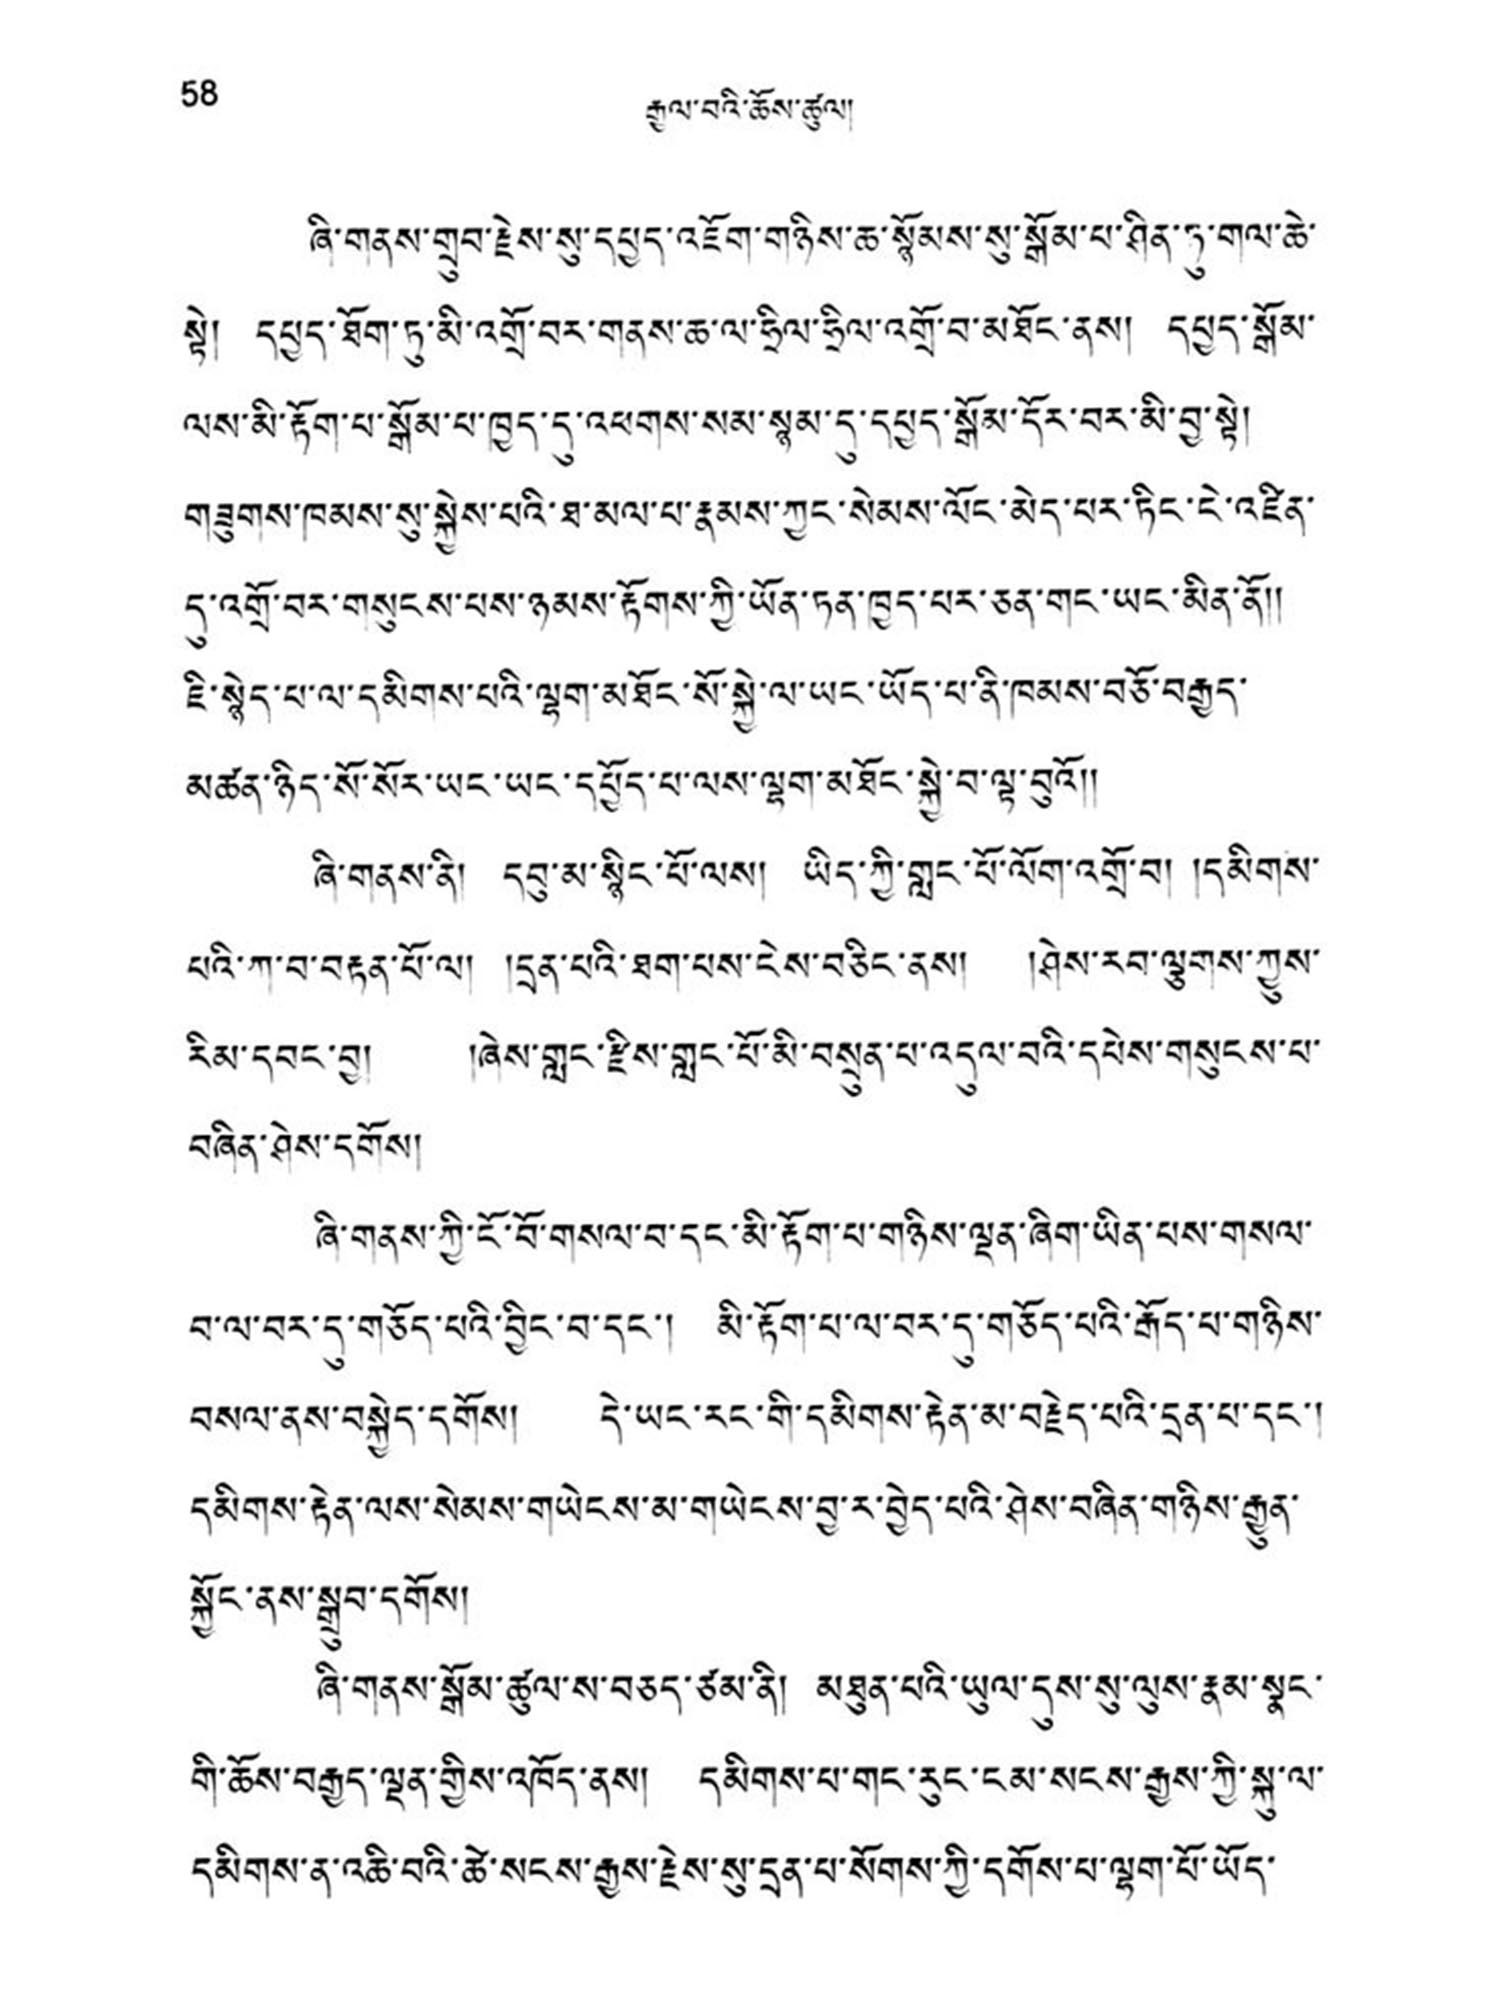 58
རྒྱལ་བའི་ཆོས་ཚུལ།
ཞི་གནས་གྲུབ་རྗེས་སུ་དཔྱད་འཇོག་གཉིས་ཆ་སྙོམས་སུ་སྒོམ་པ་ཤིན་ཏུ་གལ་ཆེ་
སྟེ། དཔྱད་ཐོག་ཏུ་མི་འགྲོ་བར་གནས་ཆ་ལ་ཧྲིལ་ཧྲིལ་འགྲོ་བ་མཐོང་ནས། དཔྱད་སྒོམ་
ལས་མི་རྟོག་པ་སྒོམ་པ་ཁྱད་དུ་འཕགས་སམ་སྙམ་དུ་དཔྱད་སྒོམ་དོར་བར་མི་བྱ་སྟེ།
གཟུགས་ཁམས་སུ་སྐྱེས་པའི་ཐ་མལ་པ་རྣམས་ཀྱང་སེམས་ལོང་མེད་པར་ཏིང་ངེ་འཛིན་
དུ་འགྲོ་བར་གསུངས་པས་ཉམས་རྟོགས་ཀྱི་ཡོན་ཏན་ཁྱད་པར་ཅན་གང་ཡང་མིན་ནོ།།
ཇི་སྙེད་པ་ལ་དམིགས་པའི་ལྷག་མཐོང་སོ་སྐྱེ་ལ་ཡང་ཡོད་པ་ནི་ཁམས་བཅོ་བརྒྱད་
མཚན་ཉིད་སོ་སོར་ཡང་ཡང་དཔྱོད་པ་ལས་ལྷག་མཐོང་སྐྱེ་བ་ལྟ་བུའོ།།
ཞི་གནས་ནི། དབུ་མ་སྙིང་པོ་ལས། ཡིད་ཀྱི་གླང་པོ་ལོག་འགྲོ་བ། །དམིགས་
པའི་ཀ་བ་བརྟན་པོ་ལ། །དྲན་པའི་ཐག་པས་ངེས་བཅིང་ནས། །ཤེས་རབ་ལྕུགས་ཀྱུས་
རིམ་དབང་བྱ། །ཞེས་གླང་རྫིས་གླང་པོ་མི་བསྲུན་པ་འདུལ་བའི་དཔེས་གསུངས་པ་
བཞིན་ཤེས་དགོས།
ཞི་གནས་ཀྱི་ངོ་བོ་གསལ་བ་དང་མི་རྟོག་པ་གཉིས་ལྡན་ཞིག་ཡིན་པས་གསལ་
བ་ལ་བར་དུ་གཅོད་པའི་བྱིང་བ་དང་། མི་རྟོག་པ་ལ་བར་དུ་གཅོད་པའི་རྒོད་པ་གཉིས་
བསལ་ནས་བསྐྱེད་དགོས། དེ་ཡང་རང་གི་དམིགས་རྟེན་མ་བརྗེད་པའི་དྲན་པ་དང་།
དམིགས་རྟེན་ལས་སེམས་གཡེངས་མ་གཡེངས་བྱ་ར་བྱེད་པའི་ཤེས་བཞིན་གཉིས་རྒྱུན་
སྐྱོང་ནས་སྒྲུབ་དགོས།
ཞི་གནས་སྒོམ་ཚུལ་ས་བཅད་ཙམ་ནི། མཐུན་པའི་ཡུལ་དུས་སུ་ལུས་རྣམ་སྣང་
གི་ཆོས་བརྒྱད་ལྡན་གྱིས་འཁོད་ནས། དམིགས་པ་གང་རུང་ངམ་སངས་རྒྱས་ཀྱི་སྐུ་ལ་
དམིགས་ན་འཆི་བའི་ཚེ་སངས་རྒྱས་རྗེས་སུ་དྲན་པ་སོགས་ཀྱི་དགོས་པ་ལྷག་པོ་ཡོད་